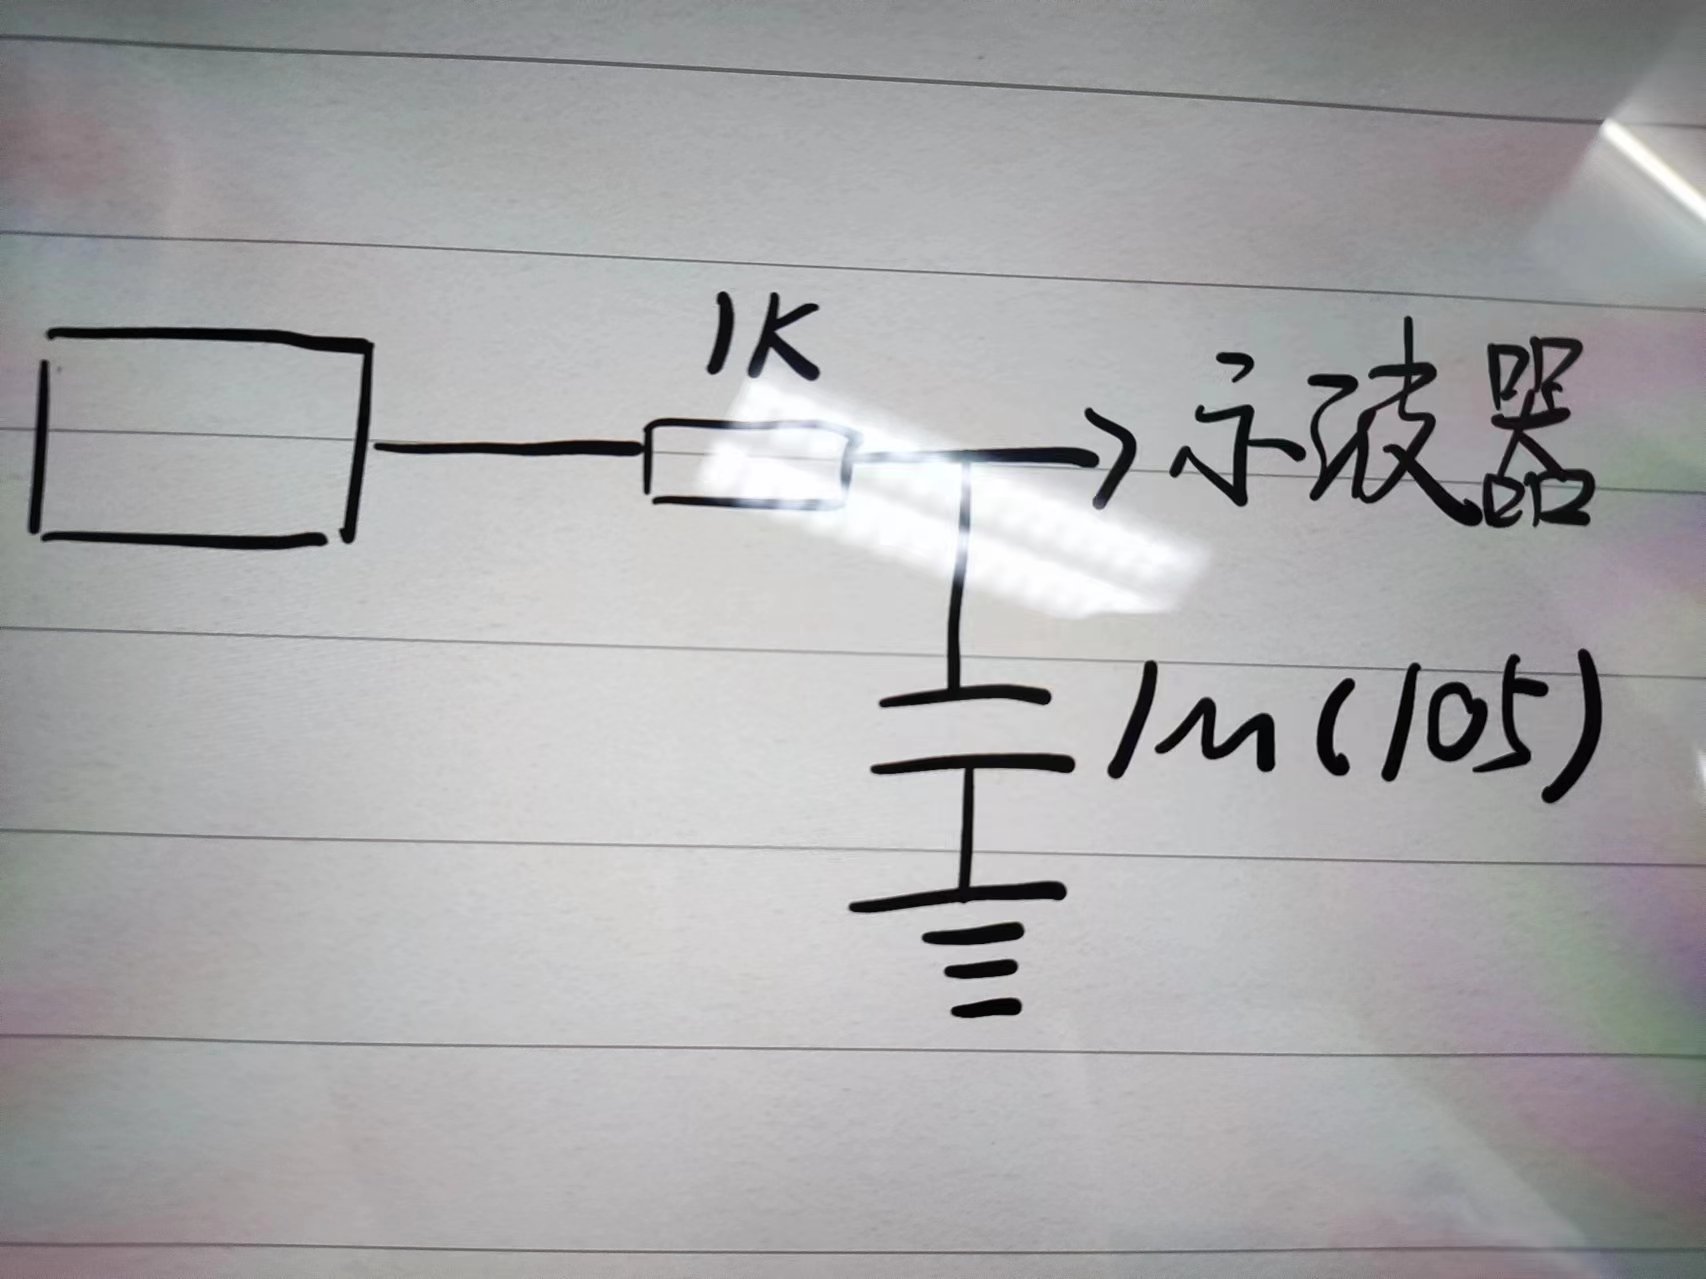 1K
示波器
1μ(105)